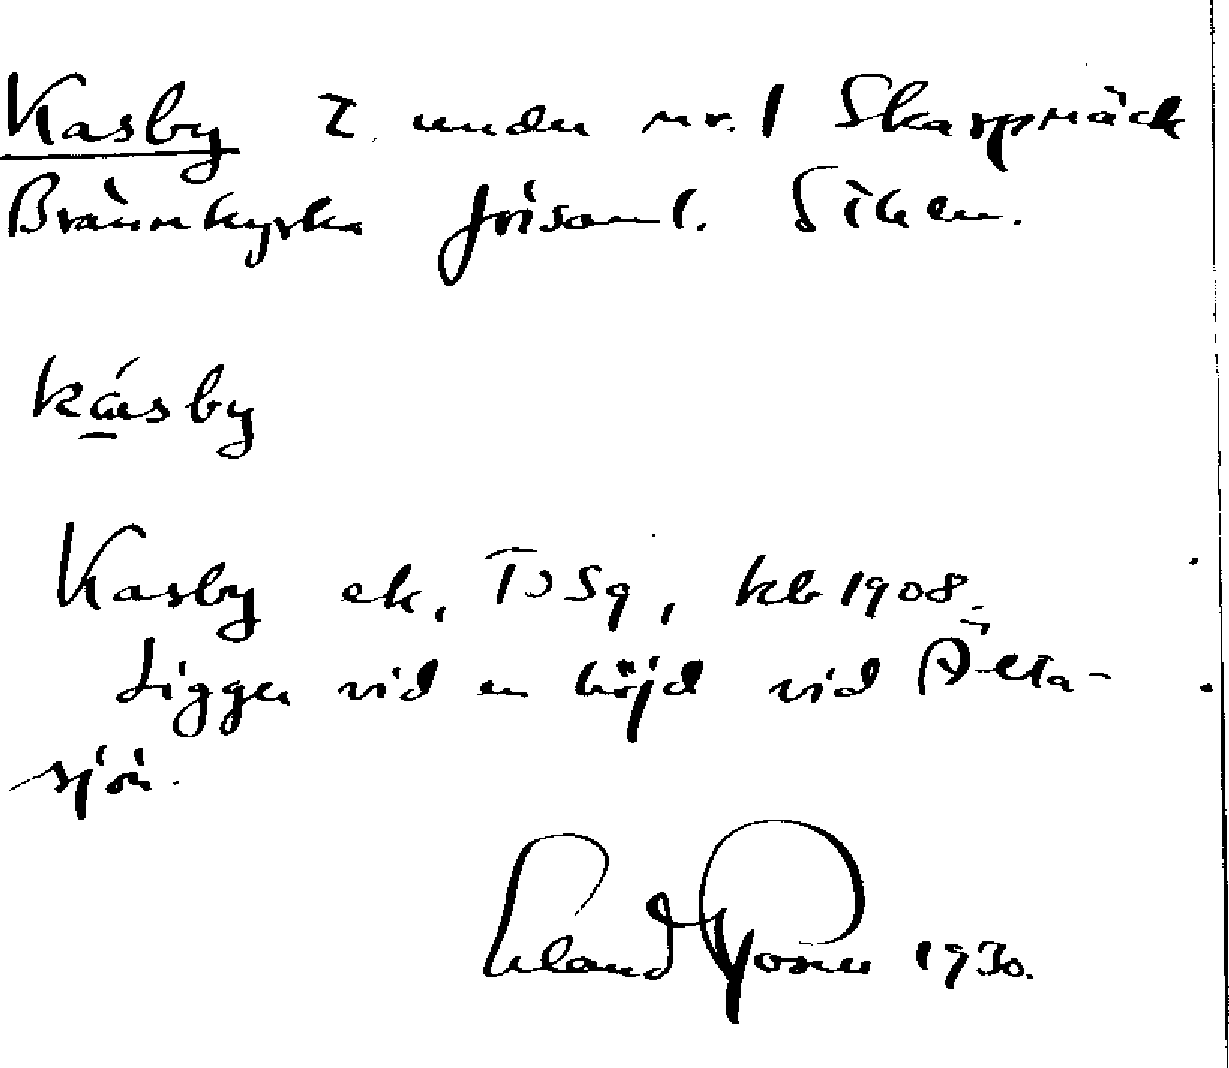 Kasby l. under nr. 1 Skarpnäck
Brännkyrka förs­aml. Sthlm.
kásby
Kasby ek, kb 1908.
Ligger vid en höjd vid Älta-
sjön.
Erland Rosell 1930.